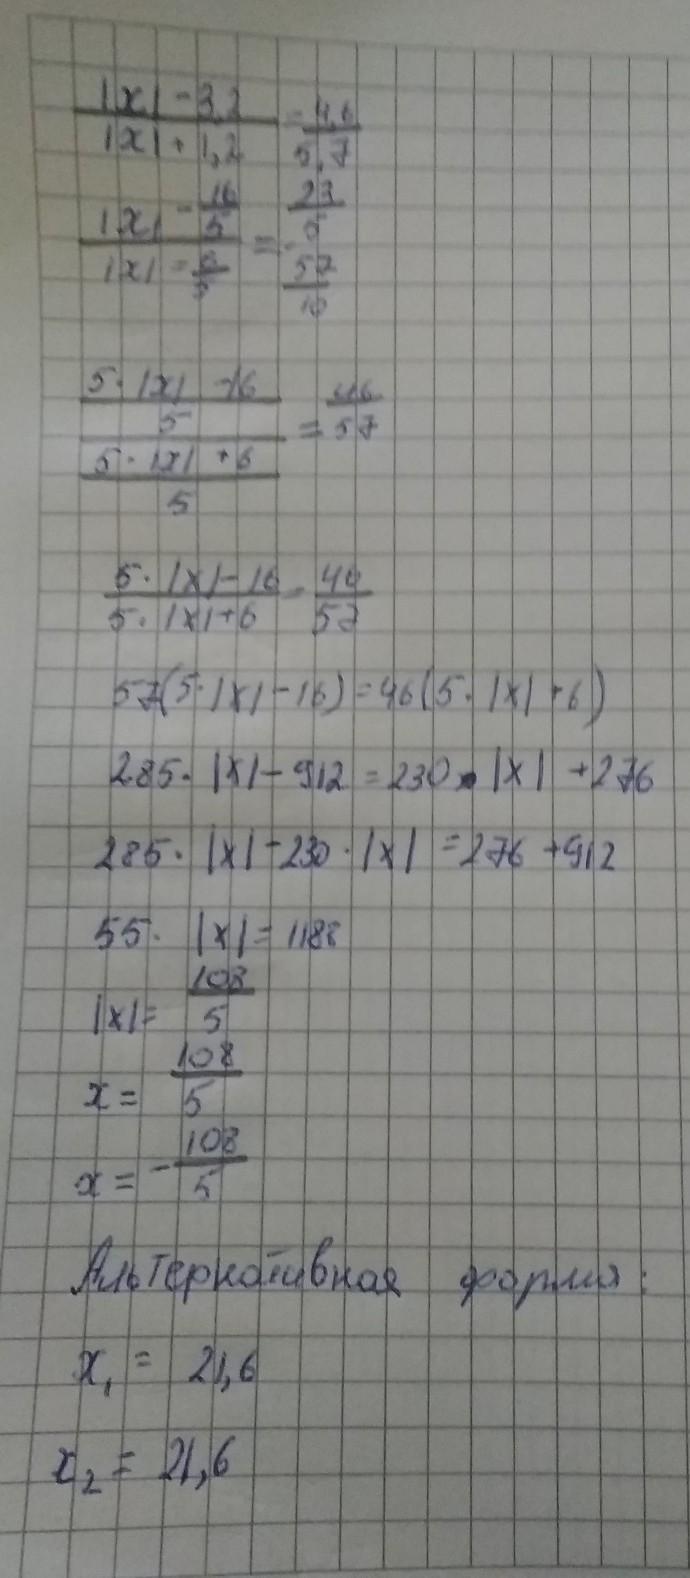 |x| - 3,2 / |x| + 1,2 = 4,6 / 5,7
|x| - 16/5 / |x| - 6/5 = 23/5 / 57/10
5·|x| - 16 / 5 / 5·|x| + 6 / 5 = 46/57
5·|x| - 16 / 5·|x| + 6 = 46/57
57(5·|x| - 16) = 46(5·|x| + 6)
285·|x| - 912 = 230·|x| + 276
285·|x| - 230·|x| = 276 + 912
55·|x| = 1188
|x| = 108/5
x = 108/5
x = -108/5
Альтернативная форма:
x₁ = 21,6
x₂ = 21,6